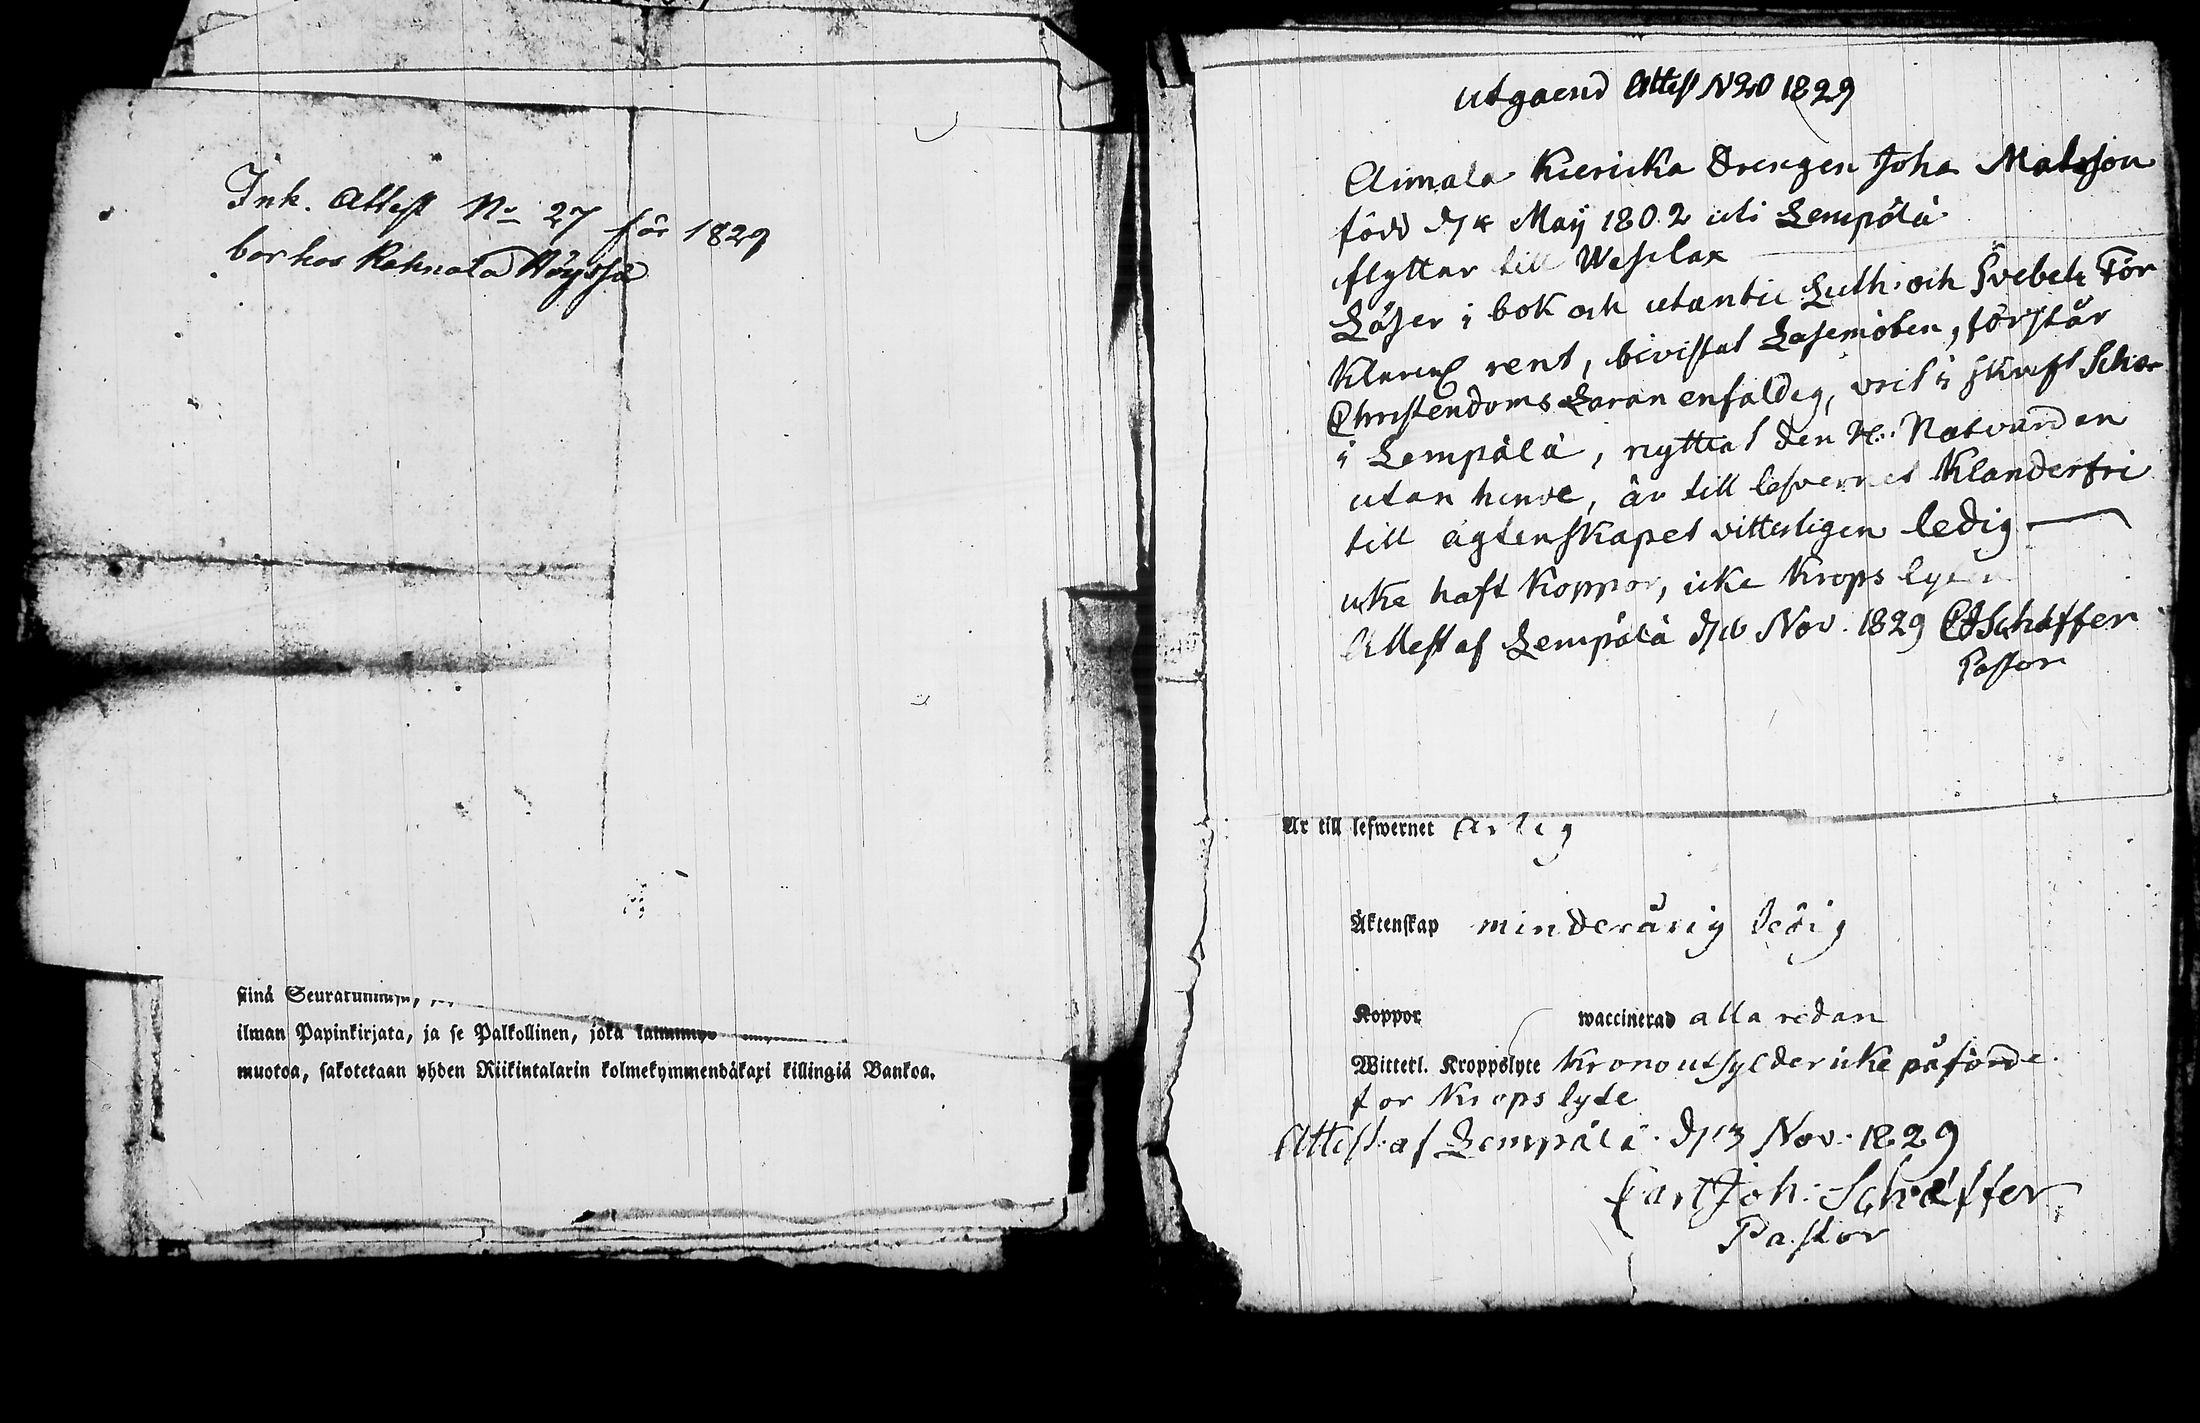 Ink. Attest No 27 för 1829
bor hos Rahnala Höyssä
siinä Seuratunnisa,
ilman Papinkirjata, ja se Palkollinen, joka
muotoa, sakotetaan yhden Riikintalarin kolmekymmendäkaxi killingiä Bankoa.
utgaend Attest N20 1829
Aimala Kiericka Drengen Joha Matsson
född d/4 Maÿ 1802 uti Lempälä
flyttar till Wesilax
Läser i bok och utantil Luth. och Svebeli För
Klaring rent, bivistat Läsemöten, förstår
Christendoms Läran enfaldig, varit i skrift Schor
i Lempälä, nyttiat den H: Natvarden
utan hinder, är till lefvernet Klanderfri
till ägtenskapet vitterligen ledig
icke haft Koppor, icke Krops lyten
Attest af Lempälä d/16 Nov. 1829 CJSchäffer
Pastor
Är till lefwernet ärlig
Äktenskap minderårig ledig
Koppor waccinerad alla redan
Witterl. Kroppslyte Krono utsylder icke påförde
for Krops lyte
Attest af Lempälä d/13 Nov. 1829
Carl Joh: Schäffer
Pastor